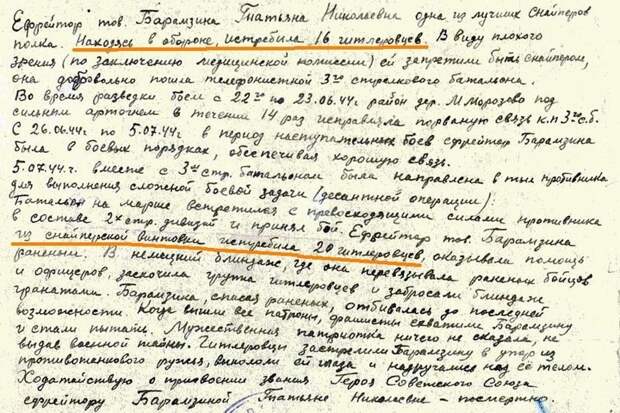 Ефрейтор тов. Барамзина Татьяна Николаевна одна из лучших снайперов
полка. Находясь в обороне, истребила 16 гитлеровцев. В виду плохого
зрения (по заключению медицинской комиссии) ей запретили быть снайпером,
она добровольно пошла телефонисткой 3го стрелкового батальона.
Во время разведки боем с 22го по 23.06.44г. район дер. М. Морозово под
сильным артогнем в течении 14 раз исправляла порваную связь к.п 3го с.б.
С 26.06.44г. по 5.07.44г. в период наступательных боев ефрейтор Барамзина
была в боевых порядках, обеспечивая хорошую связь.
5.07.44г. вместе с 3м стр. батальоном была направлена в тыл противника
для выполнения сложной боевой задачи (десантной операции).
Батальон на марше встретился с превосходящими силами противника
в составе 2х стр. дивизий и принял бой. Ефрейтор тов. Барамзина
из снайперской винтовки истребила 20 гитлеровцев, оказывала помощь
раненым. В немецкий блиндаж, где она перевязывала раненых бойцов
и офицеров, заскочила группа гитлеровцев и забросали блиндаж
гранатами. Барамзина, спасая раненых, отбивалась до последней
возможности. Когда вышли все патроны, фашисты схватили Барамзину
и стали пытать. Мужественная патриотка ничего не сказала, не
выдав военной тайны. Гитлеровцы застрелили Барамзину в упор из
противотанкового ружья, выкололи ей глаза и надругались над ее телом.
Ходатайствую о присвоении звания Героя Советского Союза
ефрейтору Барамзиной Татьяне Николаевне - посмертно.